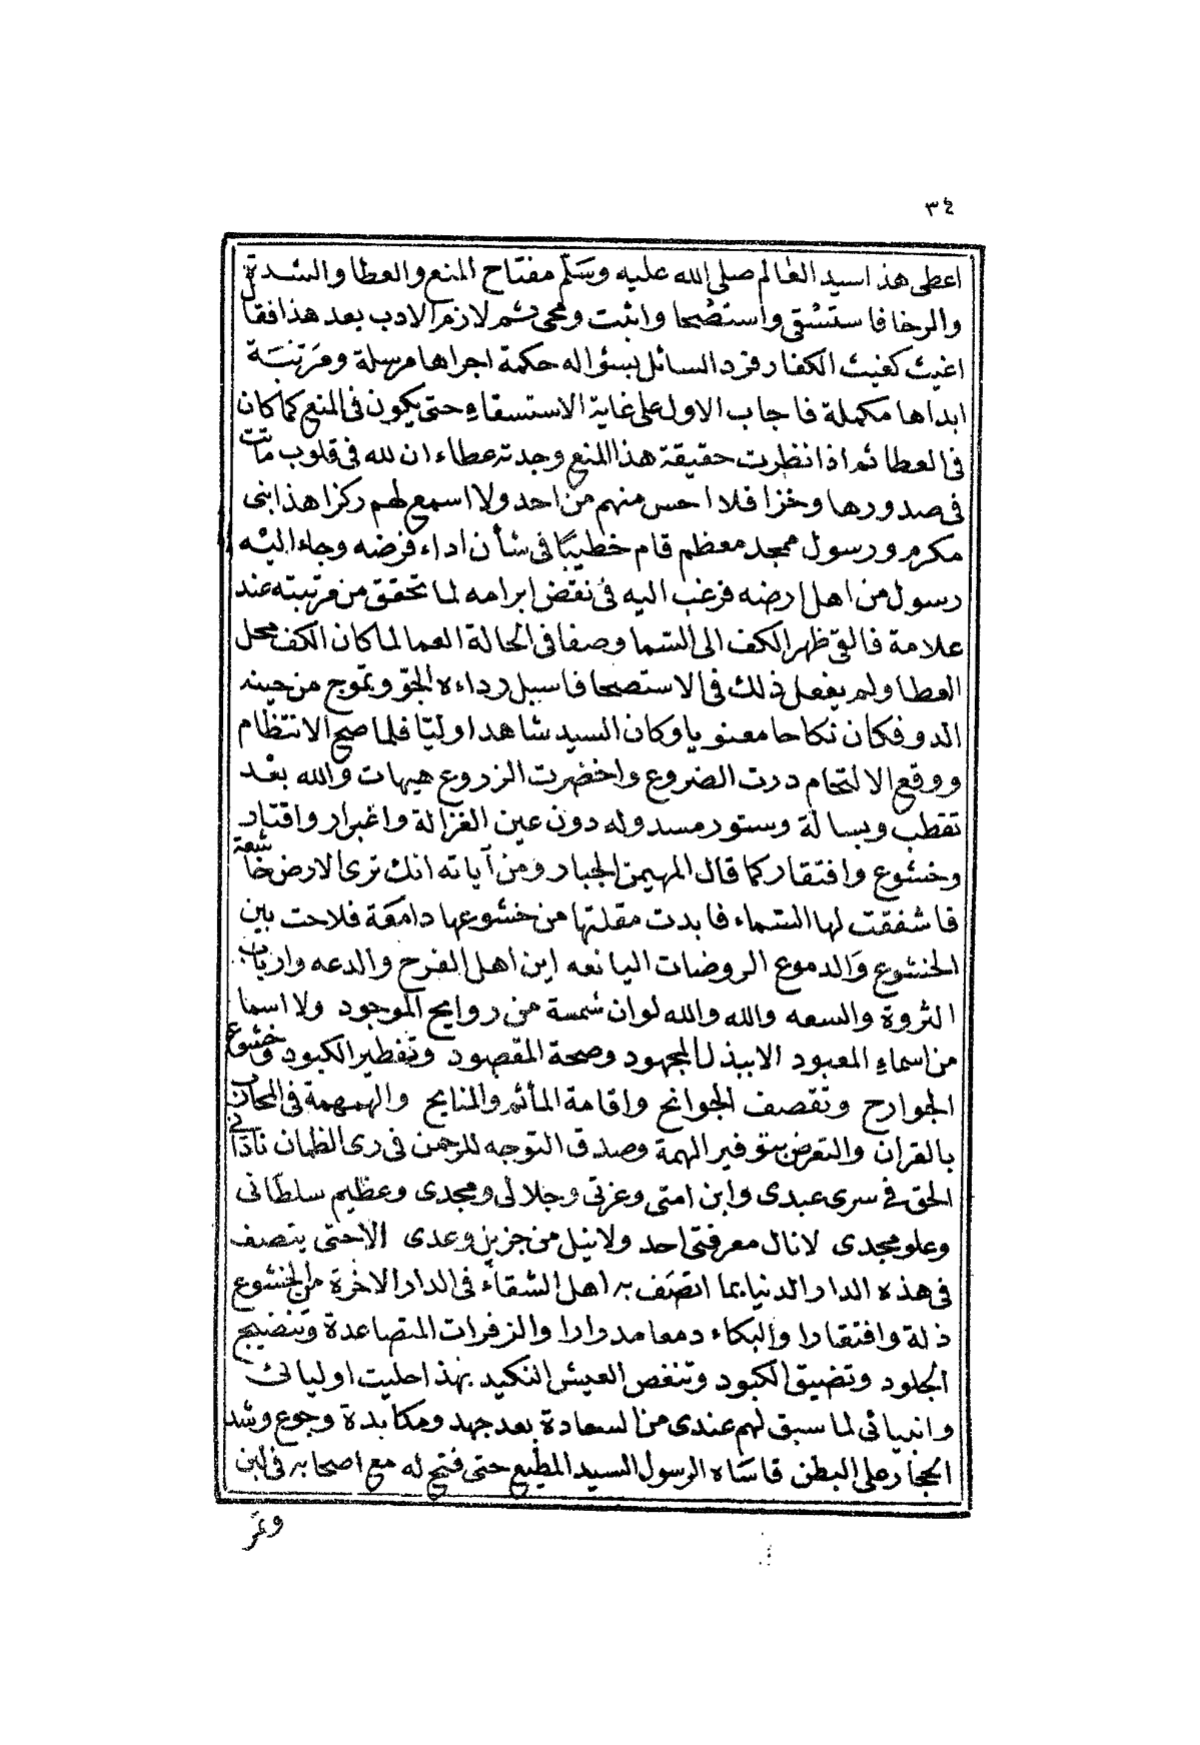 ٣٤
اعطى هذا سيد العالم صلى الله عليه وسلم مفتاح المنع والعطا والشدة
والرخا فاستسقى واستصحا واثبت ومحى ثم لازم الادب بعد هذا فقال
اغيث كغيث الكفار فرد السائل بسؤاله حكمة اجراها مرسلة ومرتبة
ابداها مكملة فاجاب الاول على غاية الاستسقاء حتى يكون فى المنع كما كان
فى العطا ثم اذا نظرت حقيقة هذا المنع وجدته عطاء ان لله فى قلوب ماتت
فى صدورها وخزا فلا احس منهم من احد ولا اسمع لهم ركزا هذا نبى
مكرم ورسول ممجد معظم قام خطيبا فى شأن اداء فرضه وجاء اليه
رسول من اهل ارضه فرغب اليه فى نقض ابرامه لما تحقق من مرتبته عند
علامة فالقى ظهر الكف الى السما وصفا فى الحالة العما لما كان الكف محل
العطا ولم يفعل ذلك فى الاستصحا فاسبل رداءه الجو وتموج من حينه
الدو فكان نكاحا معنويا وكان السيد شاهدا وليا فلما صح الانتظام
ووقع الالتحام درت الضروع واخضرت الزروع هيهات والله بعد
تقطب وبسالة وستور مسدوله دون عين الغزالة واغبرار واقتار
وخشوع وافتقار كما قال المهيمن الجبار ومن آياته انك ترى الارض خاشعة
فاشفقت لها السماء فابدت مقلتها من خشوعها دامعة فلاحت بين
الخشوع والدموع الروضات اليانعه اين اهل الفرح والدعه وارباب
الثروة والسعه والله والله لو ان شمسة من روايح الموجود ولا اسما
من اسماء المعبود الا ببذل المجهود وصحة المقصود وتفطير الكبود وخشوع
الجوارح وتقصف الجوانح واقامة المأتم والمنايح والهمهمة فى المحارب
بالقران والتعرض بتوفير الهمة وصدق التوجه للرحمن فى رى الظمان نادانى
الحق فى سرى عبدى وابن امتى وعزتى وجلالى ومجدى وعظيم سلطانى
وعلو مجدى لا نال معرفتى احد ولا نيل من جزيل وعدى الا حتى يتصف
فى هذه الدار الدنيا بما اتصف به اهل الشقاء فى الدار الاخرة من الخشوع
ذلة وافتقارا والبكاء دمعا مدرارا والزفرات المتصاعدة وتنضيج
الجلود وتضيق الكبود وتنغص العيش النكيد بهذا حليت اوليائى
وانبيائى لما سبق لهم عندى من السعادة بعد جهد ومكابدة وجوع وشد
الحجار على البطن قاساه الرسول السيد المطيع حتى فتح له مع اصحابه فى لبن
وتمر